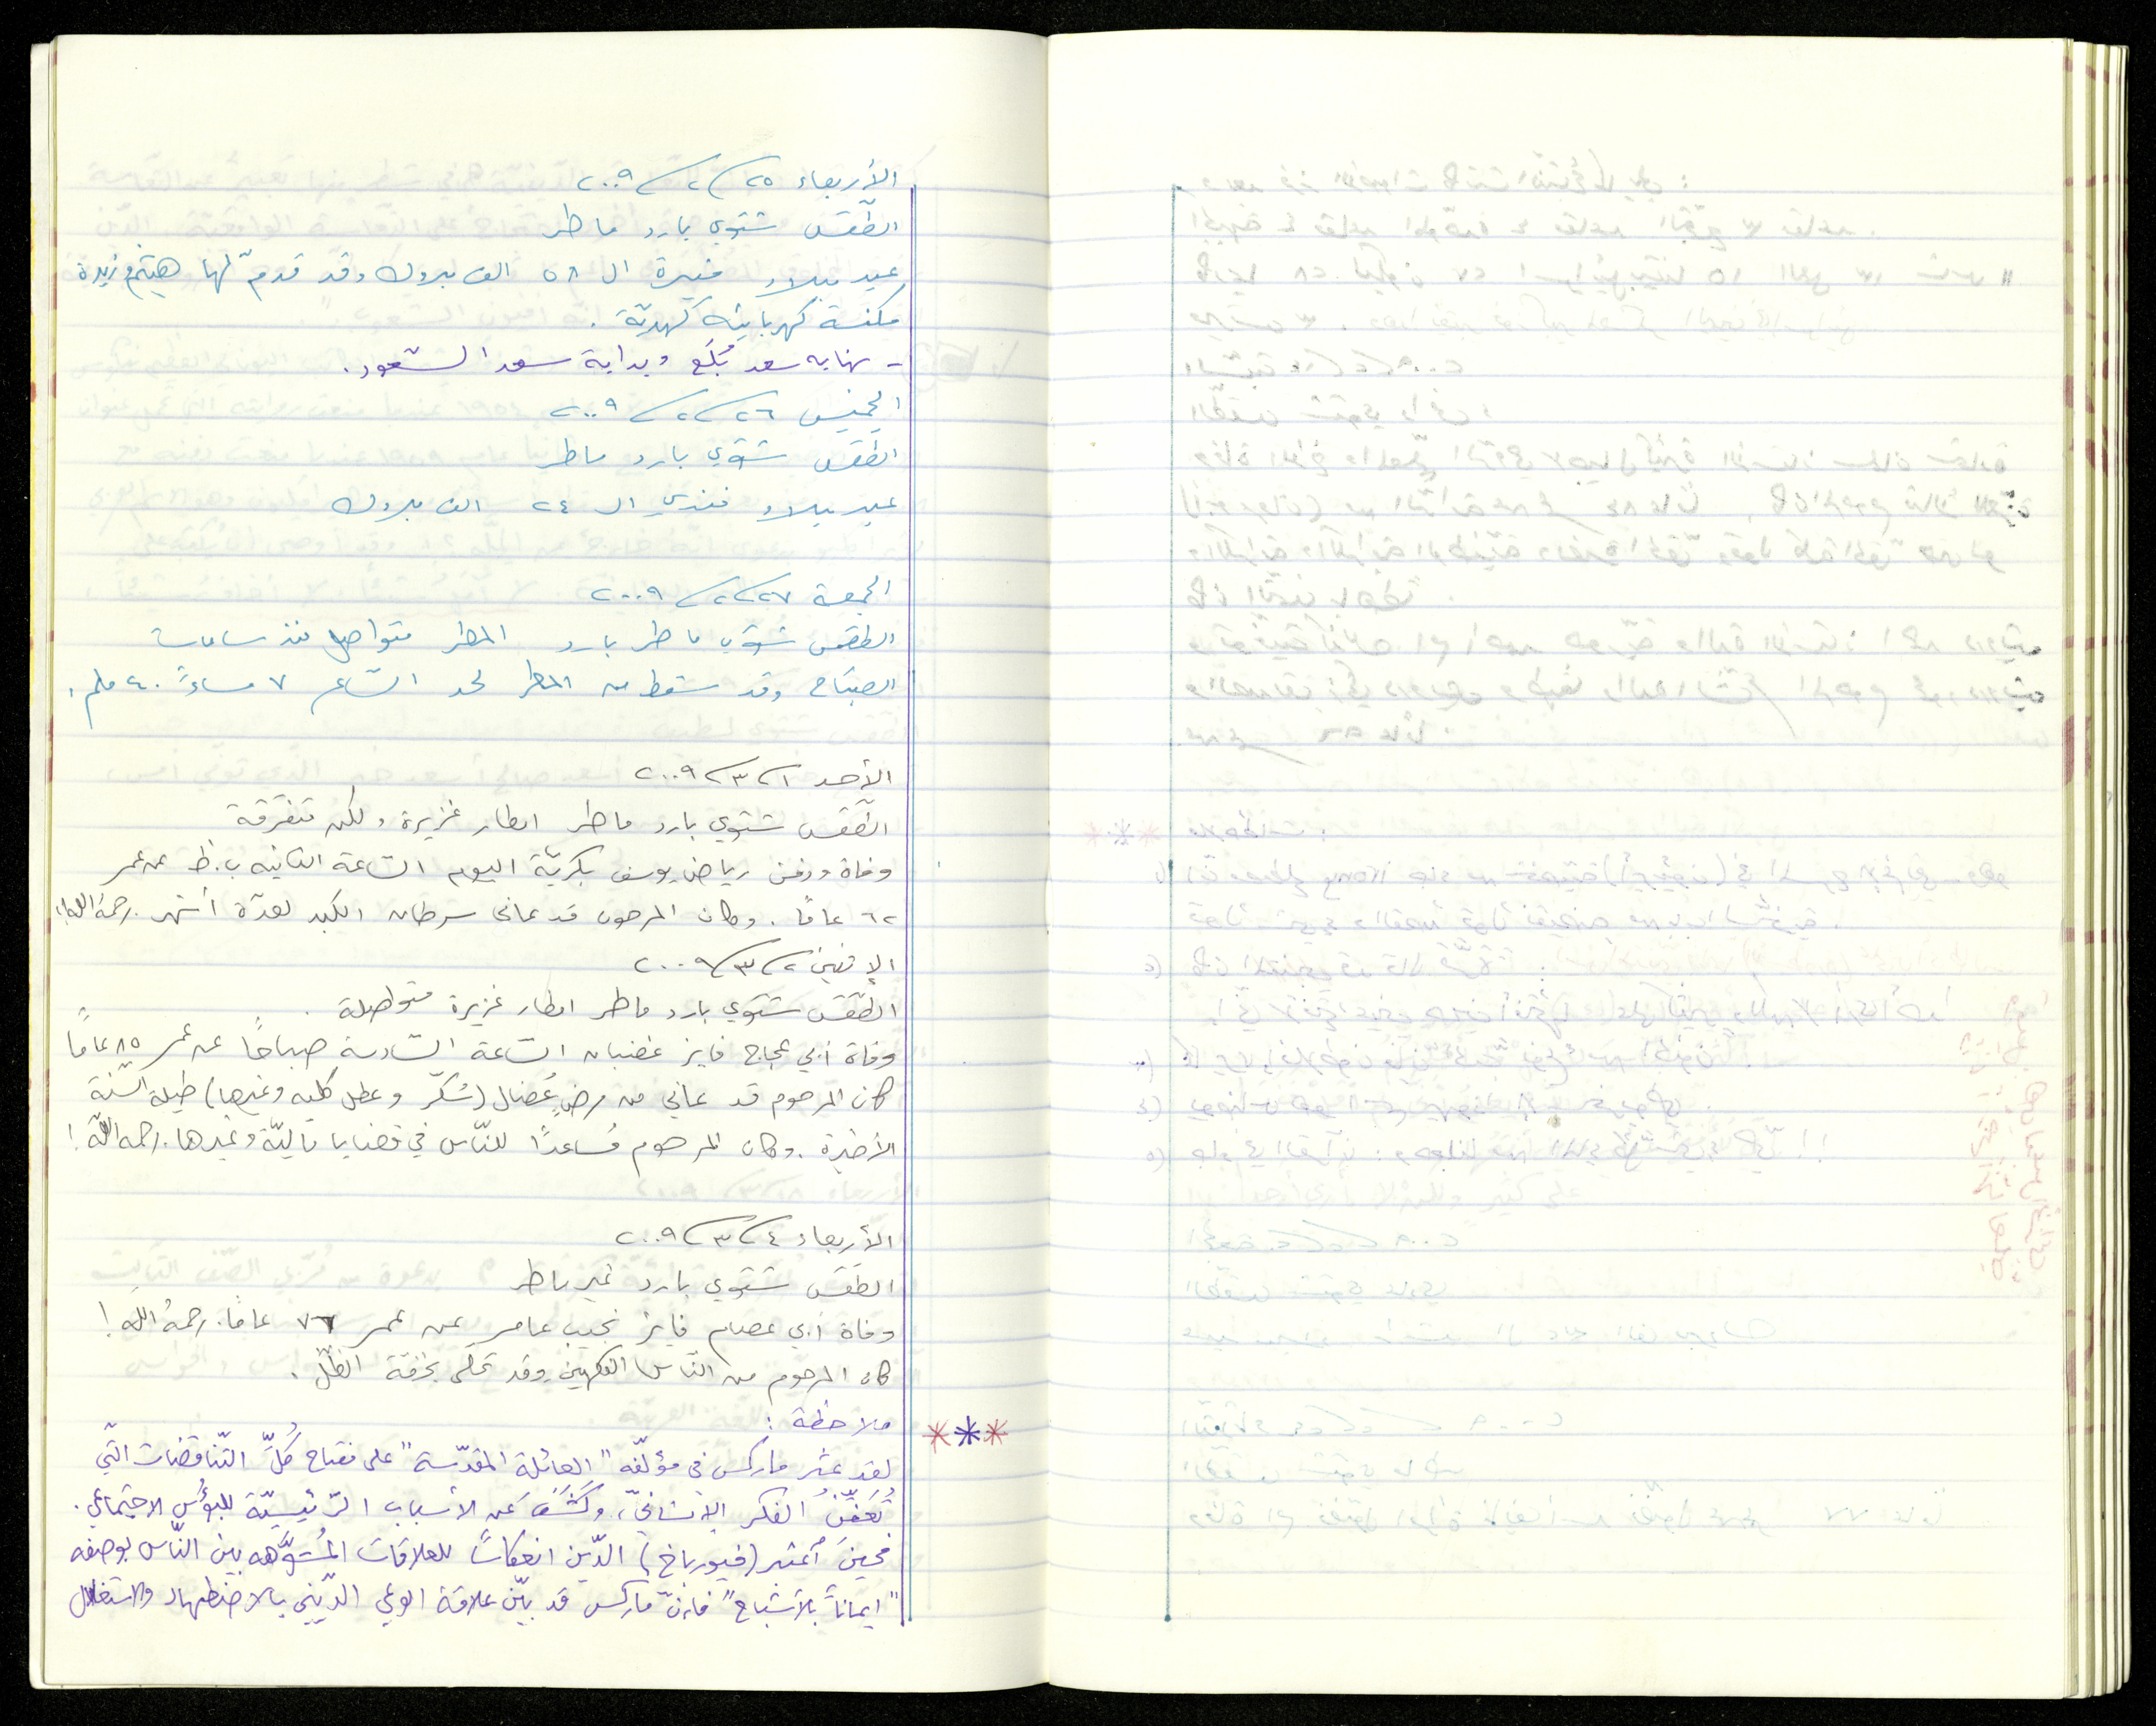 الأربعاء ٢٥/٢/٢٠٠٩
الطّقس شتوي بارد ماطر
عيد ميلاد منيرة ال ٥٨ الف مبروك وقد قدّم لها هيثم وزيدة
مكنسة كهربائيّة كهديّة .
- نهاية سعد بُلَع وبداية سعد السّعود .
الخميس ٢٦/٢/٢٠٠٩
الطقس شتوي بارد ماطر
عيد ميلاد ال ٢٤ الف مبروك
الجمعة ٢٧/٢/٢٠٠٩
الطقس شتوي ماطر بارد المطر متواصل منذ ساعات
الصّباح وقد سقط من المطر لحد السّاعة ٧ مساءً ٤٠ ملم .
الأحد ١/٣/٢٠٠٩
الطّقس شتوي بارد ماطر امطار غزيرة ولكن متفرقة
وفاة ودفن رياض يوسف بكريّة اليوم السّاعة الثانية ب.ظ عن عمر
٦٢ عامًا . وكان المرحوم قد عانى سرطان الكبد لعدّة أشهر . رحمهُ الله !
الإثنين ٢/٣/٢٠٠٩
الطّقس شتوي بارد ماطر امطار غزيرة متواصلة .
وفاة أبي عجاج فايز غضبان السّاعة السّادسة صباحًا عن عمر ٨٥ عامًا
كان المرحوم قد عانى من مرضٍ عُضال (سُكّر وعطل كليه وغيرها) طيلة السّنة
الأخيرة . وكان المرحوم مُساعدًا للنّاس في قضايا ماليّة وغيرها . رحمه الله !
الأربعاء ٤/٣/٢٠٠٩
الطقس شتوي بارد غير ماطر
وفاة أبي عصام فايز نجيب عامر عن عمر ٧٦ عامًا . رحمهُ الله !
كان المرحوم من النّاس الفكهين وقد تحلّى بخفّة الظّل .
*** ملاحظة :
لقد عثر ماركس في مؤلّفه "العائلة المقدّسة" على مفتاح كُلّ التّناقضات الّتي
الفكر الإنسانيّ، وكَشَفَ عَنِ الأسباب الرّئيسيّة للبؤس الاجتماعي .
فحينَ اعتبر (فيورباخ) الدّين انعكاسًا للعلاقات المُشوَّهه بين النّاس بوصفه
"ايمانًا بالأشباح" فإنّ ماركس قد بيّن علاقة الوعي الدّيني بالاضطهاد والاستغلال